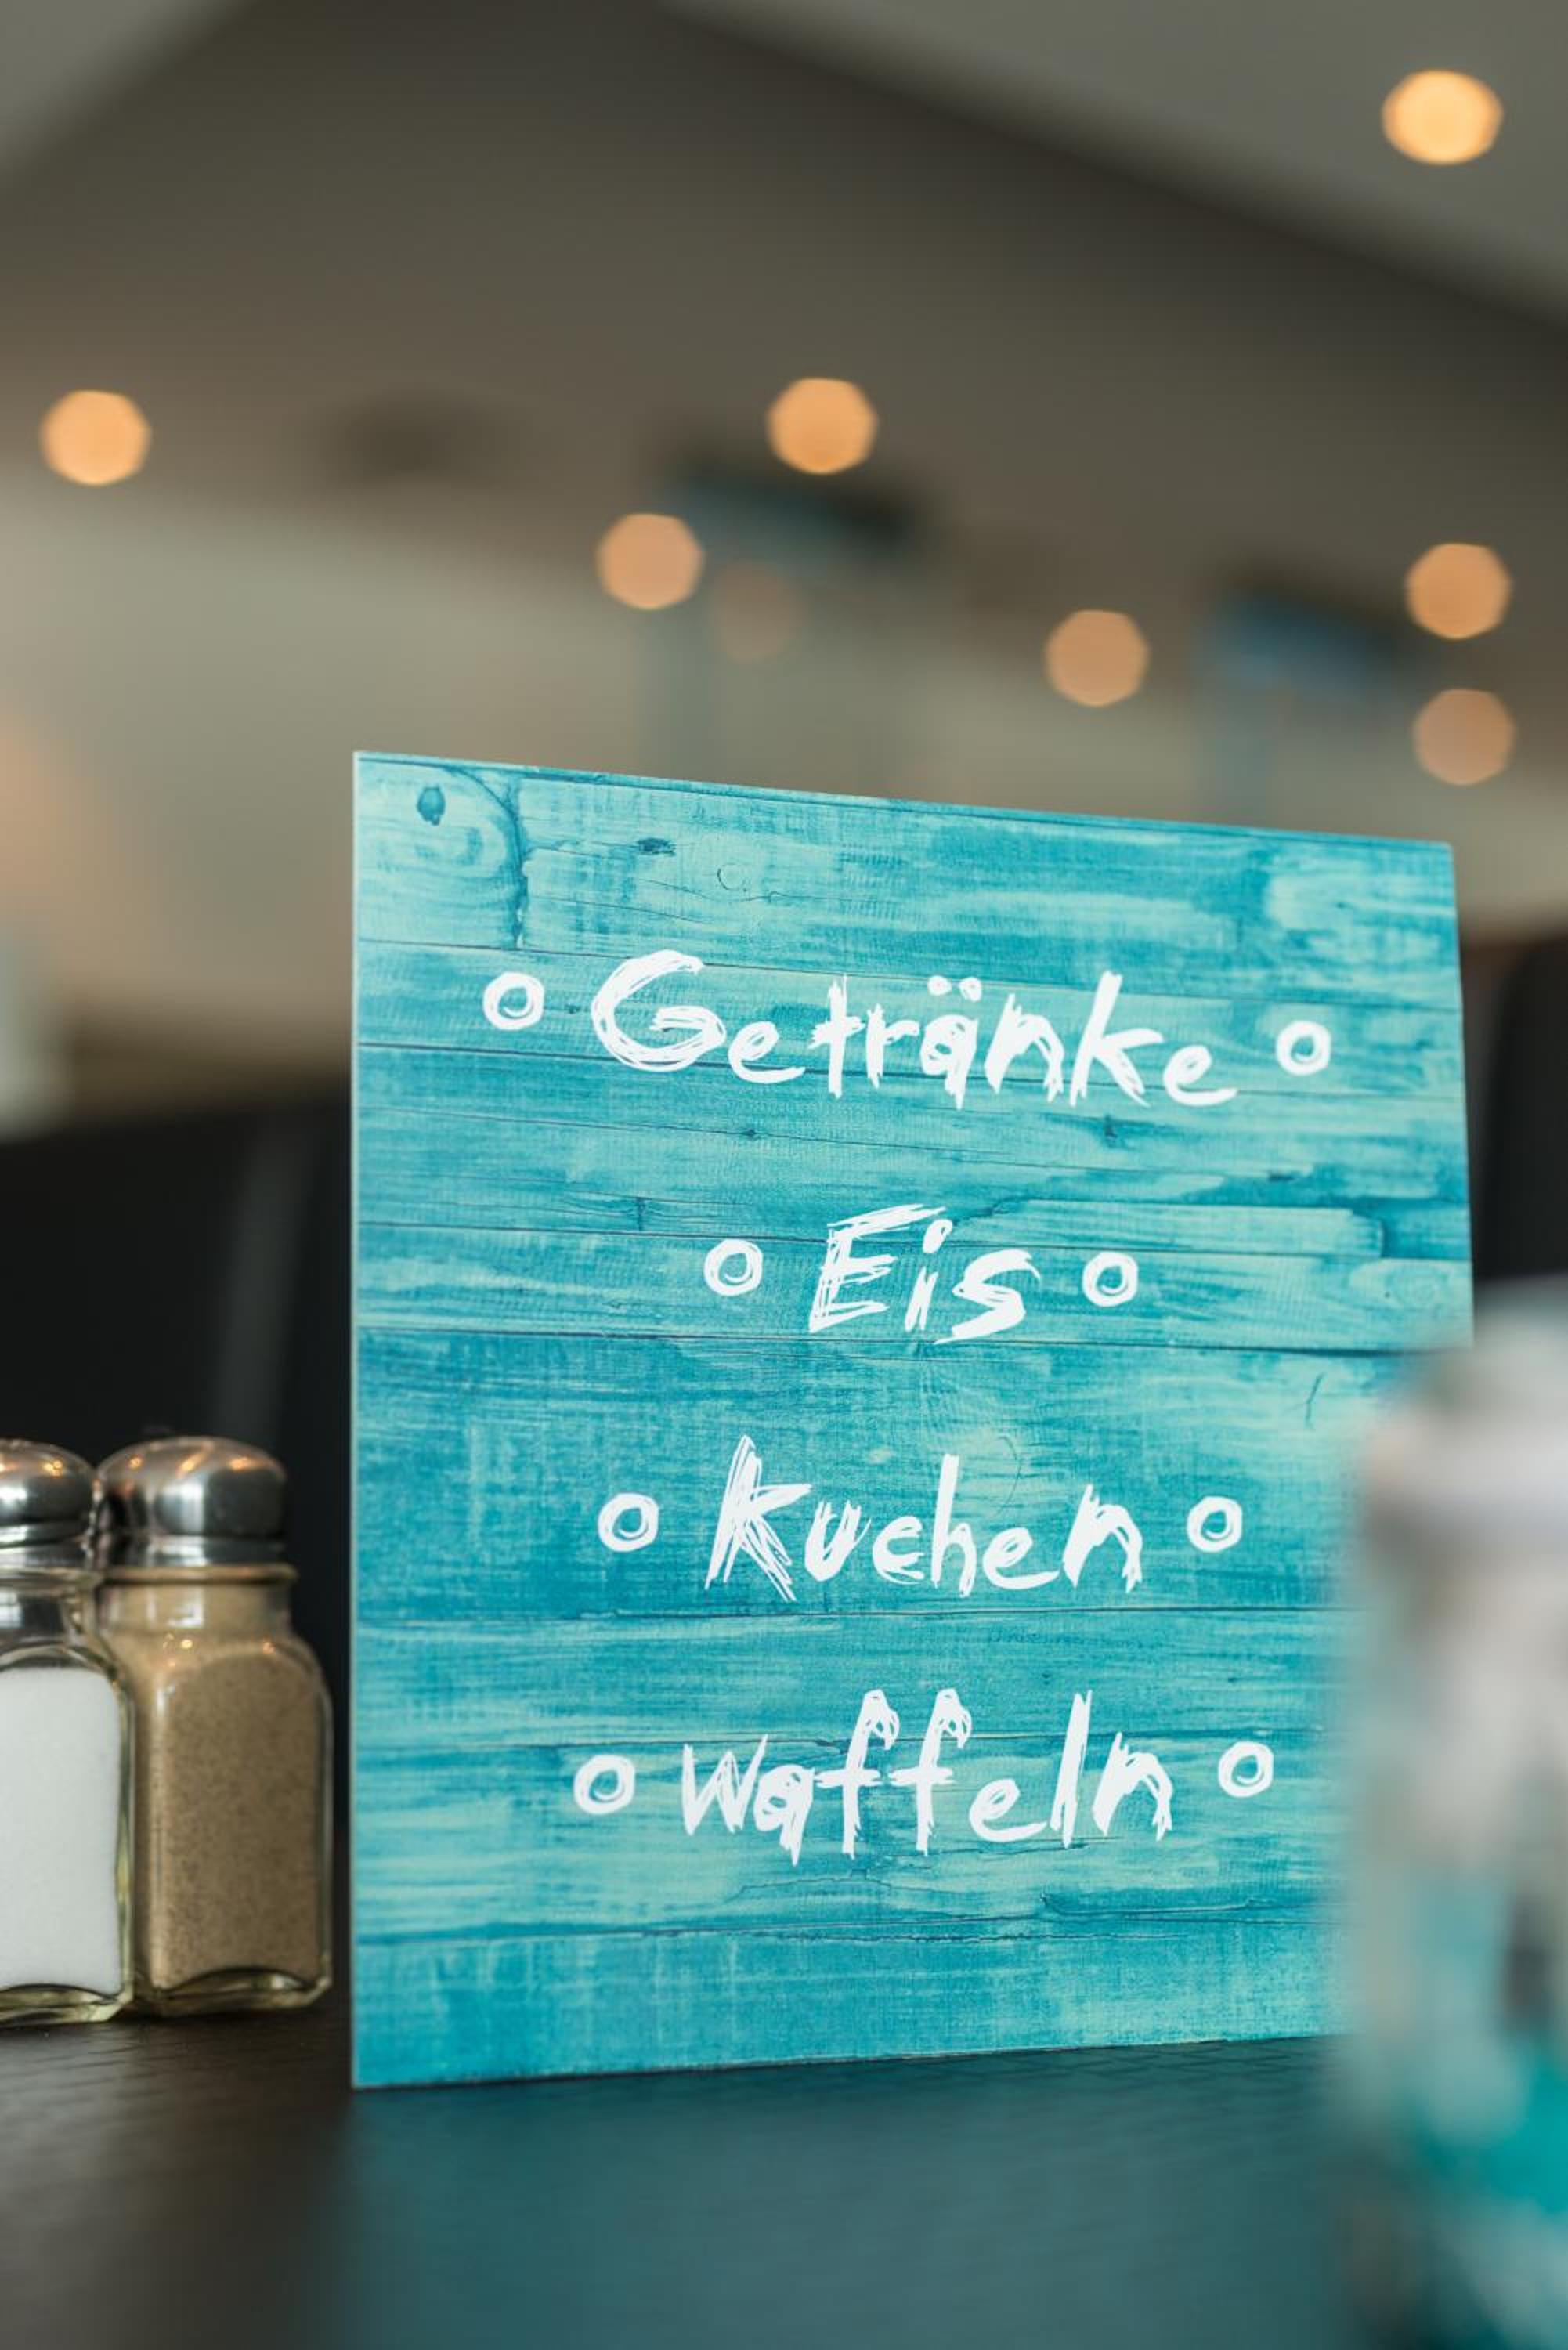 o Getränke o
o Eis o
o Kuchen o
o Waffeln o